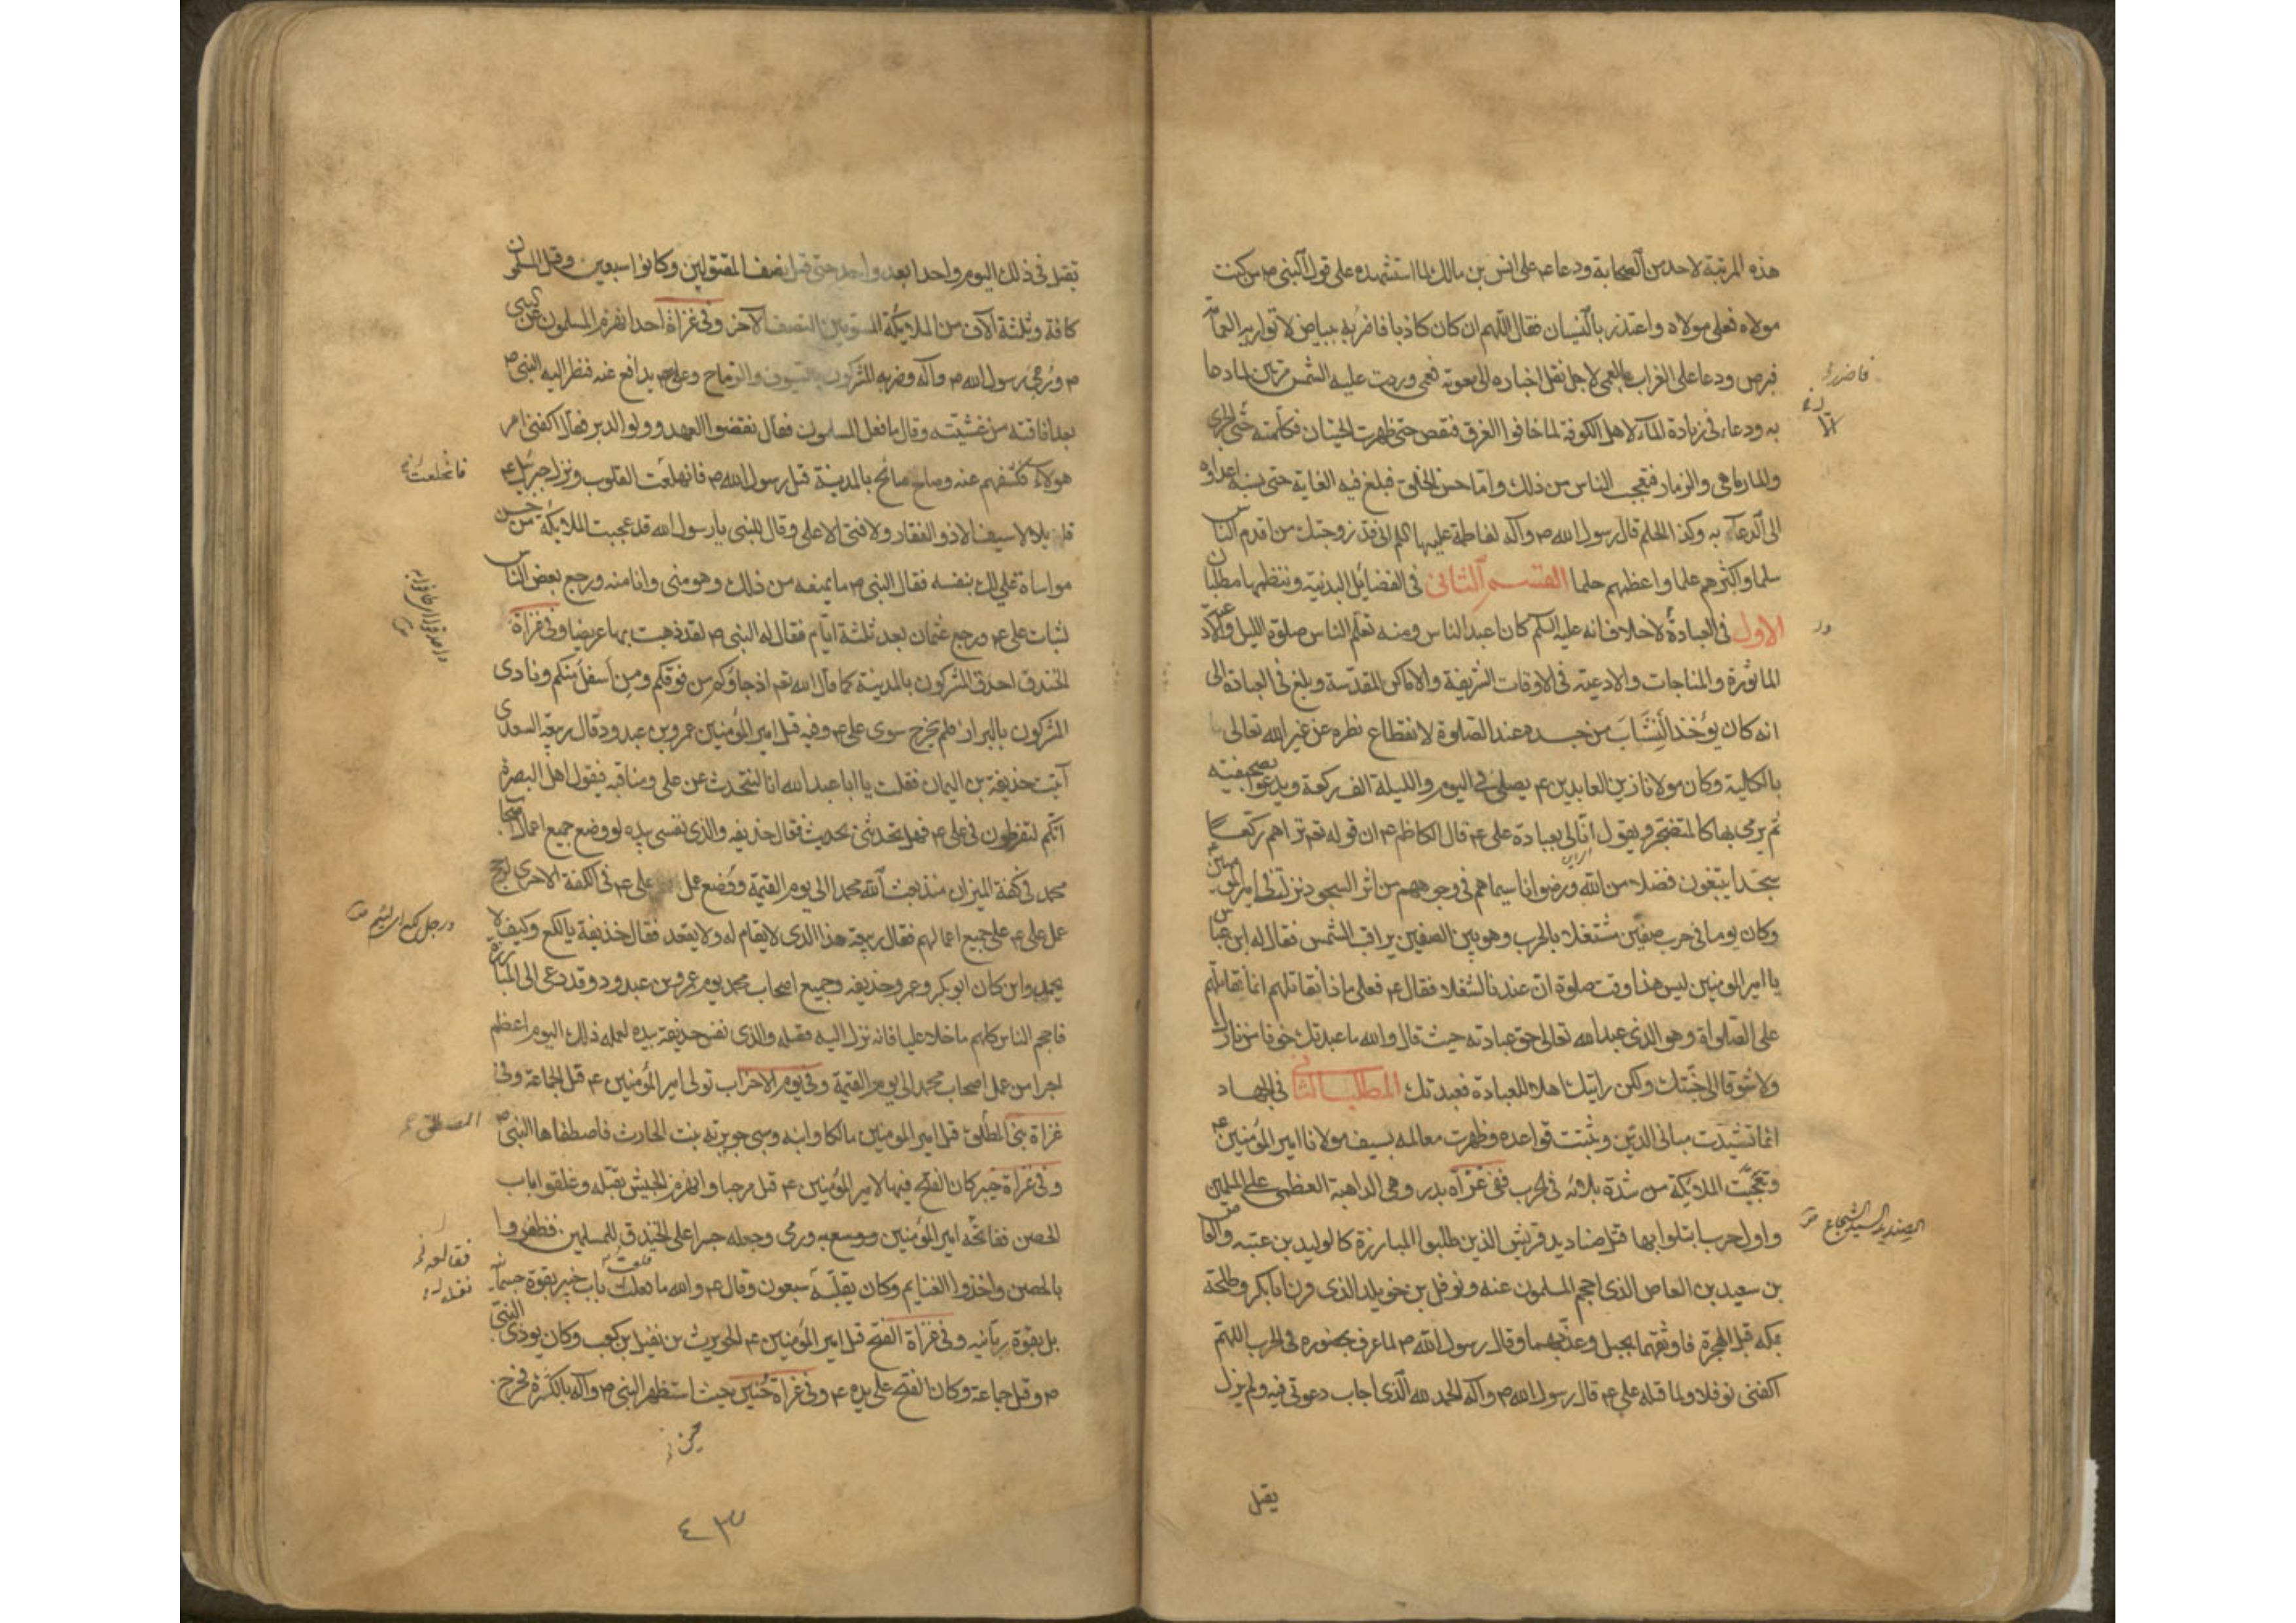 هذه المرتبة لاحد من الصحابة ودعاء ٤ على انس بن مالك لما استشهده على قول النبى ص من كنت
مولاه فعلى مولاه واعتذر بالنسيان فقال اللهم ان كان كاذبا فاضربه ببياض لا تواريه العمامة
فبرص ودعا على الغراب بالعمى لاجل نقل اخباره الى معوية فعمى وردت عليه الشمس مرتين لما دعا
به ودعاء فى زيادة الماء لاهل الكوفة لما خافوا الغرق فنقص حتى ظهرت الحيتان فكلمته حتى الجرى
والمارماهى والزمار فتعجب الناس من ذلك واما حسن الخلق فبلغ فيه الغاية حتى نسبه اعداؤه
الى الدعابة وكذا الحلم قال رسول الله ص وآله لفاطمة عليها السلم انى قد زوجتك من اقدم الناس
سلما واكثرهم علما واعظمهم حلما القسم الثانى فى الفضايل البدنية وننظمها مطلبان
الاول فى العبادة لا خلاف انه عليه السلم كان اعبد الناس ومنه تعلم الناس صلوة الليل والادعية
الماثورة والمناجات والادعية فى الاوقات الشريفة والاماكن المقدسة وبلغ فى العبادة الى
انه كان يؤخذ النشاب من جسده عند الصلوة لانقطاع نظره عن غير الله تعالى
بالكلية وكان مولانا زين العابدين ٤ يصلى فى اليوم والليلة الف ركعة ويدعو بصحيفته
ثم يرمى بها كالمتضجر ويقول انى لى بعبادة على ٤ قال الكاظم ٤ ان قوله تع تراهم ركعا
سجدا يبتغون فضلا من الله ورضوانا سيماهم فى وجوههم من اثر السجود نزلت فى امير المؤمنين ٤
وكان يوما فى حرب صفين مشتغلا بالحرب وهو بين الصفين يراقب الشمس فقال له ابن عباس
يا امير المؤمنين ليس هذا وقت صلوة ان عندنا لشغلا فقال ٤ فعلى ماذا نقاتلهم انما نقاتلهم
على الصلواة وهو الذى عبد الله تعالى حق عبادته حيث قال والله ما عبدتك خوفا من نارك
ولا شوقا الى جنتك ولكن رايتك اهلا للعبادة فعبدتك المطلب الثانى فى الجهاد
انما تشيدت مبانى الدين وثبتت قواعده وظهرت معالمه بسيف مولانا امير المؤمنين ٤
وتعجبت الملائكة من شدة بلائه فى الحرب ففى غزاة بدر وهى الداهية العظمى على المسلمين
واول حرب ابتلوا بها قتل صناديد قريش الذين طلبوا المبارزة كالوليد بن عتبه والعاص
بن سعيد بن العاص الذى احجم المسلمون عنه ونوفل بن خويلد الذى قرن ابا بكر وطلحة
بمكه قبل الهجرة فاوثقهما بحبل وعذبهما وقال رسول الله ص لما عرف بحضوره فى الحرب اللهم
اكفنى نوفلا ولما قتله على ٤ قال رسول الله ص وآله الحمد لله الذى اجاب دعوتى فيه ولم يزل
يقتل
الصنديد السيد الشجاع
تقتل فى ذلك اليوم واحدا بعد واحد حتى قتل نصف المقتولين وكانوا سبعين وقتل المسلمون
كافة وثلثة آلاف من الملايكة المسومين النصف الآخر وفى غزاة احد انهزم المسلمون عن النبى
ص ورمى رسول الله ص وآله وضربه المشركون بالسيوف والرماح وعلى ٤ يدافع عنه فنظر اليه النبى ص
بعد افاقته من غشيته وقال ما فعل المسلمون فقال نقضوا العهد وولو الدبر فقال اكفنى امر
هولاء فكشفهم عنه وصاح صائح بالمدينة قتل رسول الله ص فانخلعت القلوب ونزل جبرئيل ٤
قائلا لا سيف الا ذو الفقار ولا فتى الا على وقال للنبى يا رسول الله قد عجبت الملائكة من حسن
مواساة على لك بنفسه فقال النبى ص ما يمنعه من ذلك وهو منى وانا منه ورجع بعض الناس
لثبات على ٤ ورجع عثمان بعد ثلثة ايام فقال له النبى ص لقد ذهبت بها عريضا وفى غزاة
الخندق احدق المشركون بالمدينة كما قال الله تع اذ جاؤكم من فوقكم ومن اسفل منكم ونادى
المشركون بالبراز فلم يخرج سوى على ٤ وفيه قتل امير المؤمنين عمرو بن عبد ود قال ربيعة السعدى
آتيت حذيفة بن اليمان فقلت يا ابا عبد الله انا لنتحدث عن على ومناقبه فيقول اهل البصرة
انكم لتفرطون فى على ٤ فهل تحدثنى بحديث فقال حذيفه والذى نفسى بيده لو وضع جميع اعمال اصحاب
محمد فى كفة الميزان منذ بعث الله محمدا الى يوم القيمة ووضع عمل على ٤ فى الكفة الاخرى لرجح
عمل على ٤ على جميع اعمالهم فقال ربيعة هذا الذى لا يقام له ولا يقعد فقال حذيفة يا لكع وكيف لا
يحمل واين كان ابو بكر وعمر وحذيفه وجميع اصحاب محمد يوم عمرو بن عبد ود وقد دعى الى المبارزة
فاحجم الناس كلهم ما خلا عليا فانه نزل اليه فقتله والذى نفس حذيفة بيده لعمله ذلك اليوم اعظم
اجرا من عمل اصحاب محمد الى يوم القيمة وفى يوم الاحزاب تولى امير المؤمنين ٤ قتل الجماعة وفى
غزاة بنى المطلق قتل امير المومنين مالكا وابنه وسبى جويرية بنت الحارث فاصطفاها النبى ص
وفى غزاة خيبر كان الفتح فيها لامير المؤمنين ٤ قتل مرحبا وانهزم الجيش بقتله وغلقوا باب
الحصن ففاتحه امير المؤمنين ووسع به ورمى وجعله جسرا على الخندق للمسلمين فظفروا
بالحصن واخذوا الغنايم وكان يقلبه سبعون وقال ٤ والله ما قلعت باب خيبر بقوة جسمانية
بل بقوة ربانيه وفى غزاة الفتح قتل امير المؤمنين ٤ الحويرث بن نفيل بن كعب وكان يوذى النبى
ص وقتل جماعة وكان الفتح على يده ٤ وفى غزاة حنين حيث استظهر النبى ص وآله بالكثرة فخرج
فانخلعت
المصطلق
٤٣